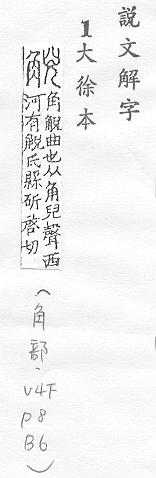 說文解字
1大徐本
觬 角觬曲也从角兒聲西
河有觬氏縣研啓切
(角部．V4下 P8 B6)